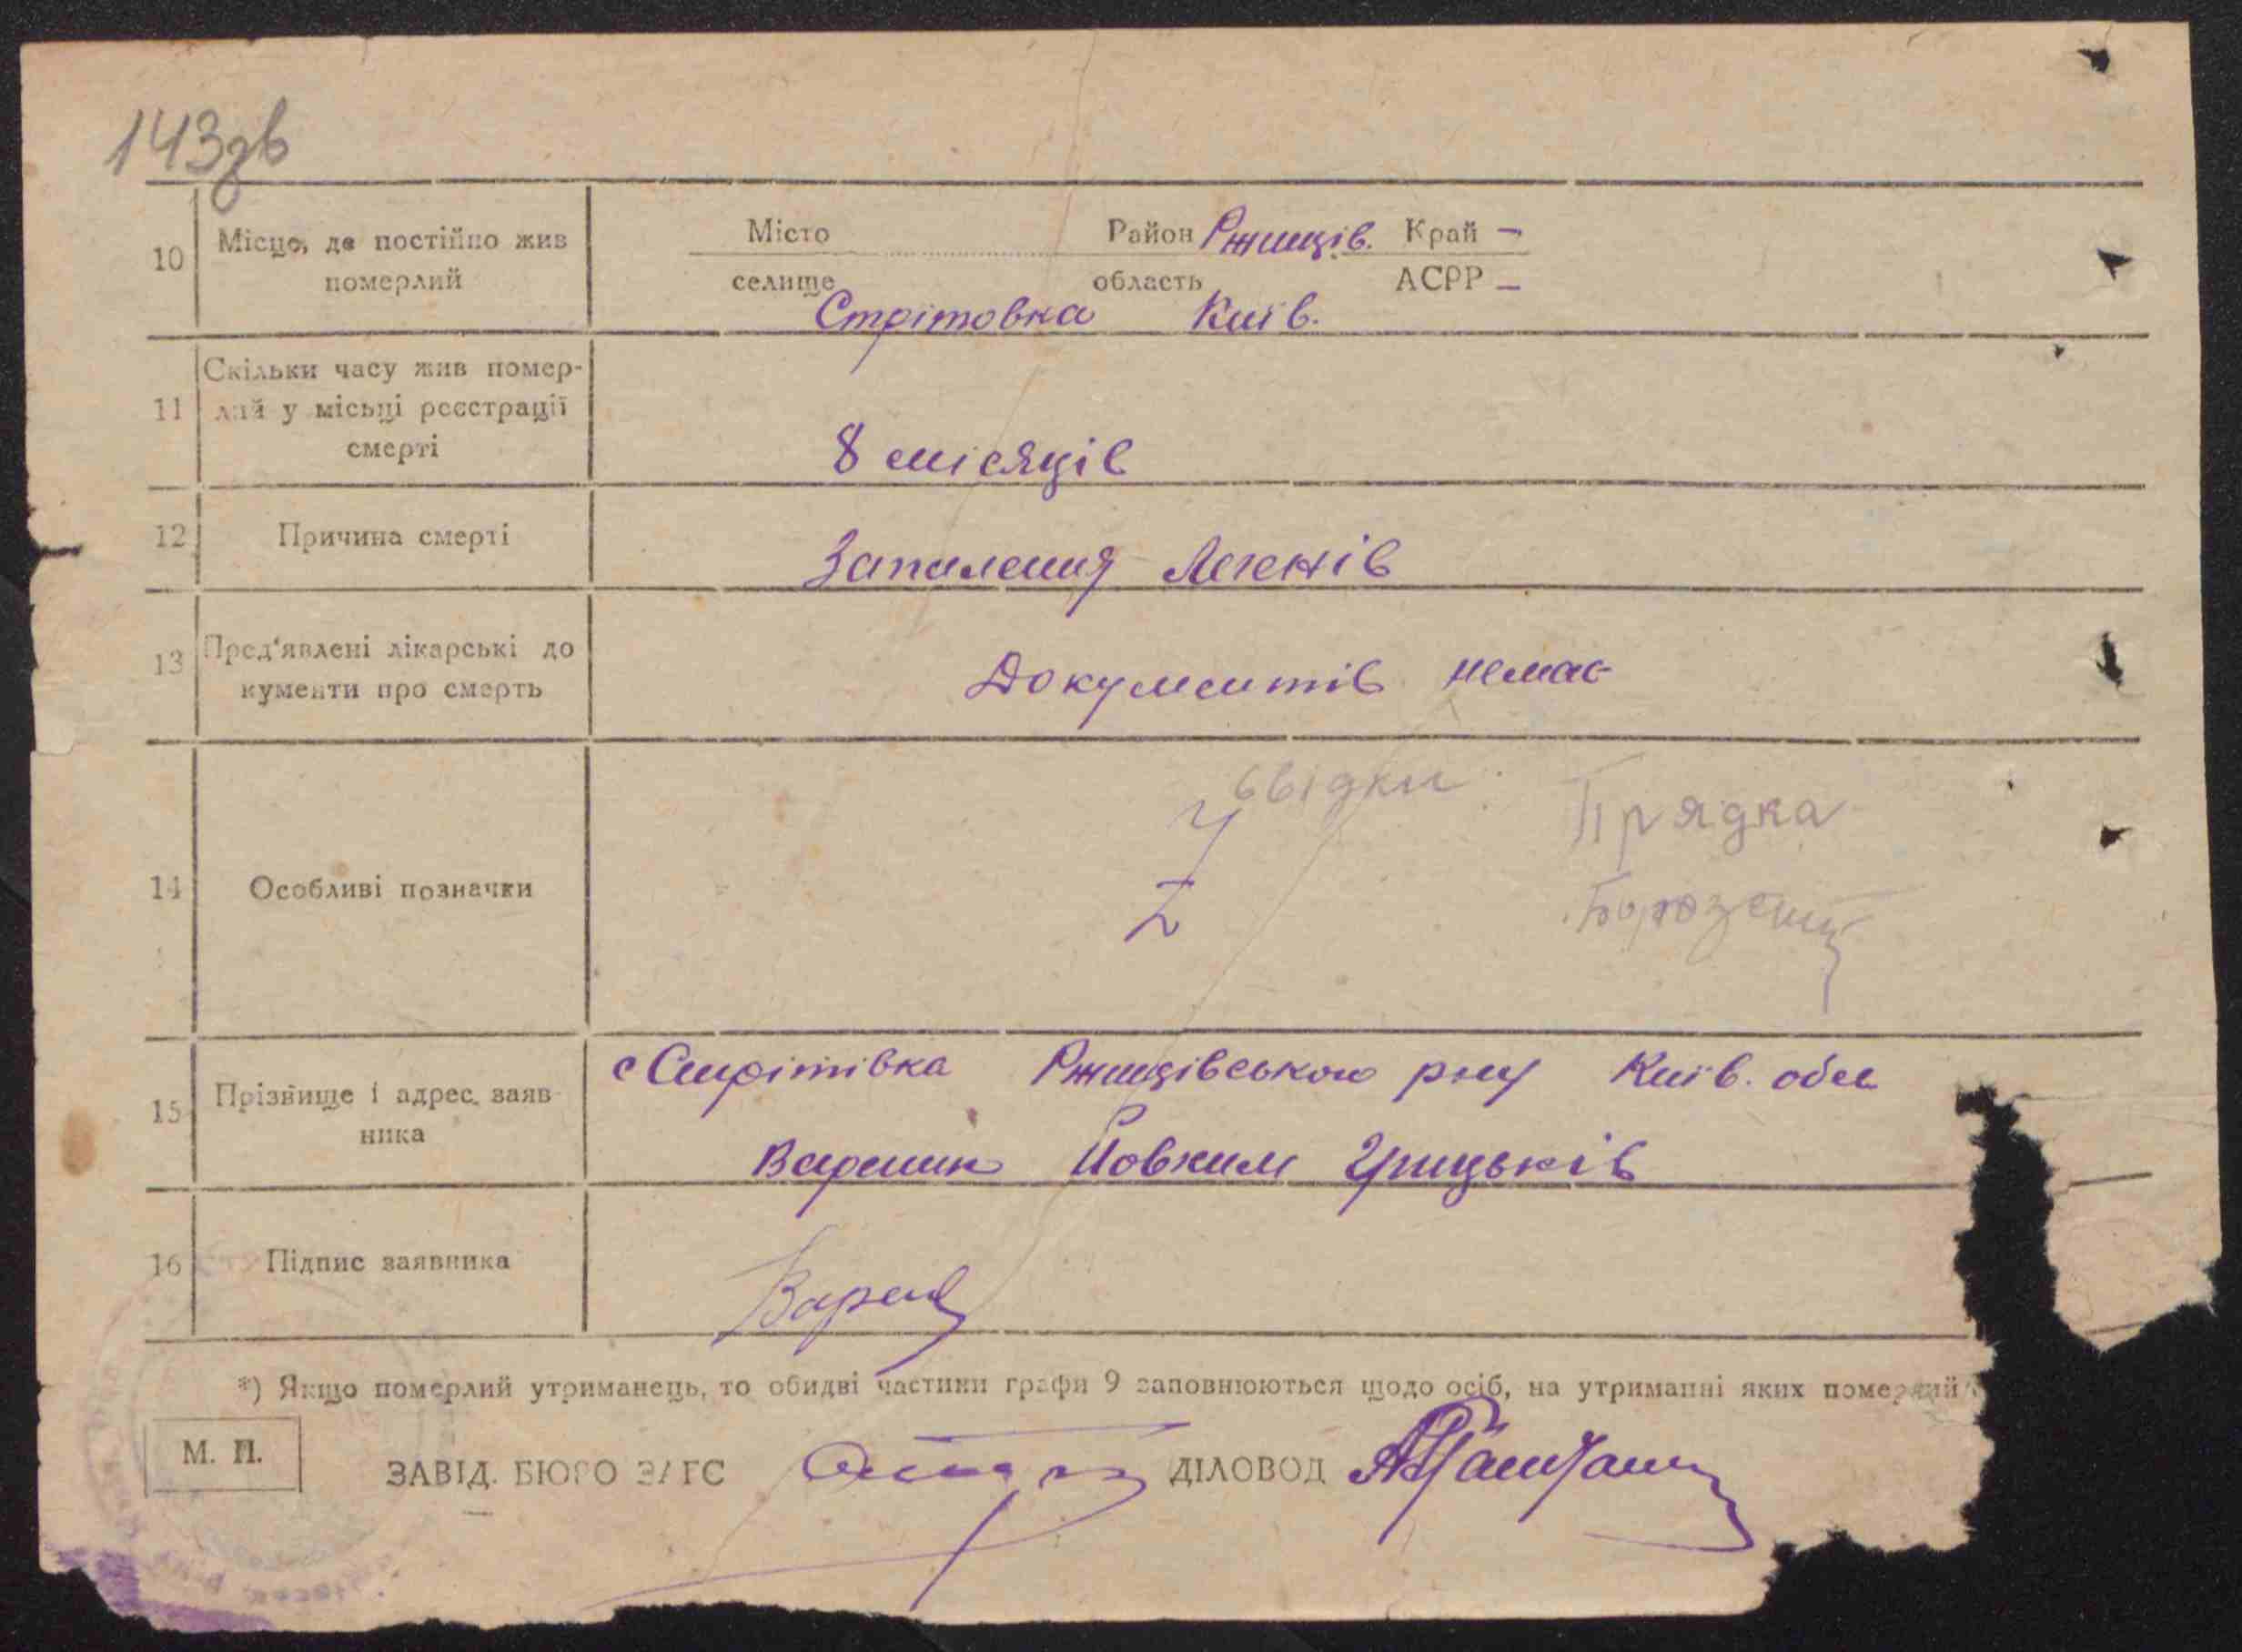 143зв
10 Місце, де постійно жив померлий
Місто Район Ржищів. Край –
селище область АСРР –
Стрітовка Київ.
11 Скільки часу жив помер-
лий у місьці реєстрації
смерті
8 місяців
12 Причина смерті
Запалення Легенів
13 Пред'явлені лікарські до
кументи про смерть
Документів немає
14 Особливі позначки
свідки Прядка
Z
15 Прізвище і адрес. заяв
ника
с Стрітівка Ржищівського рну Київ. обл
Вареник Йовхим Грицьків
16 Підпис заявника
*) Якщо померлий утриманець, то обидві частини графи 9 заповнюються щодо осіб, на утриманні яких померлий
М. П.
ЗАВІД. БЮРО ЗАГС ДІЛОВОД